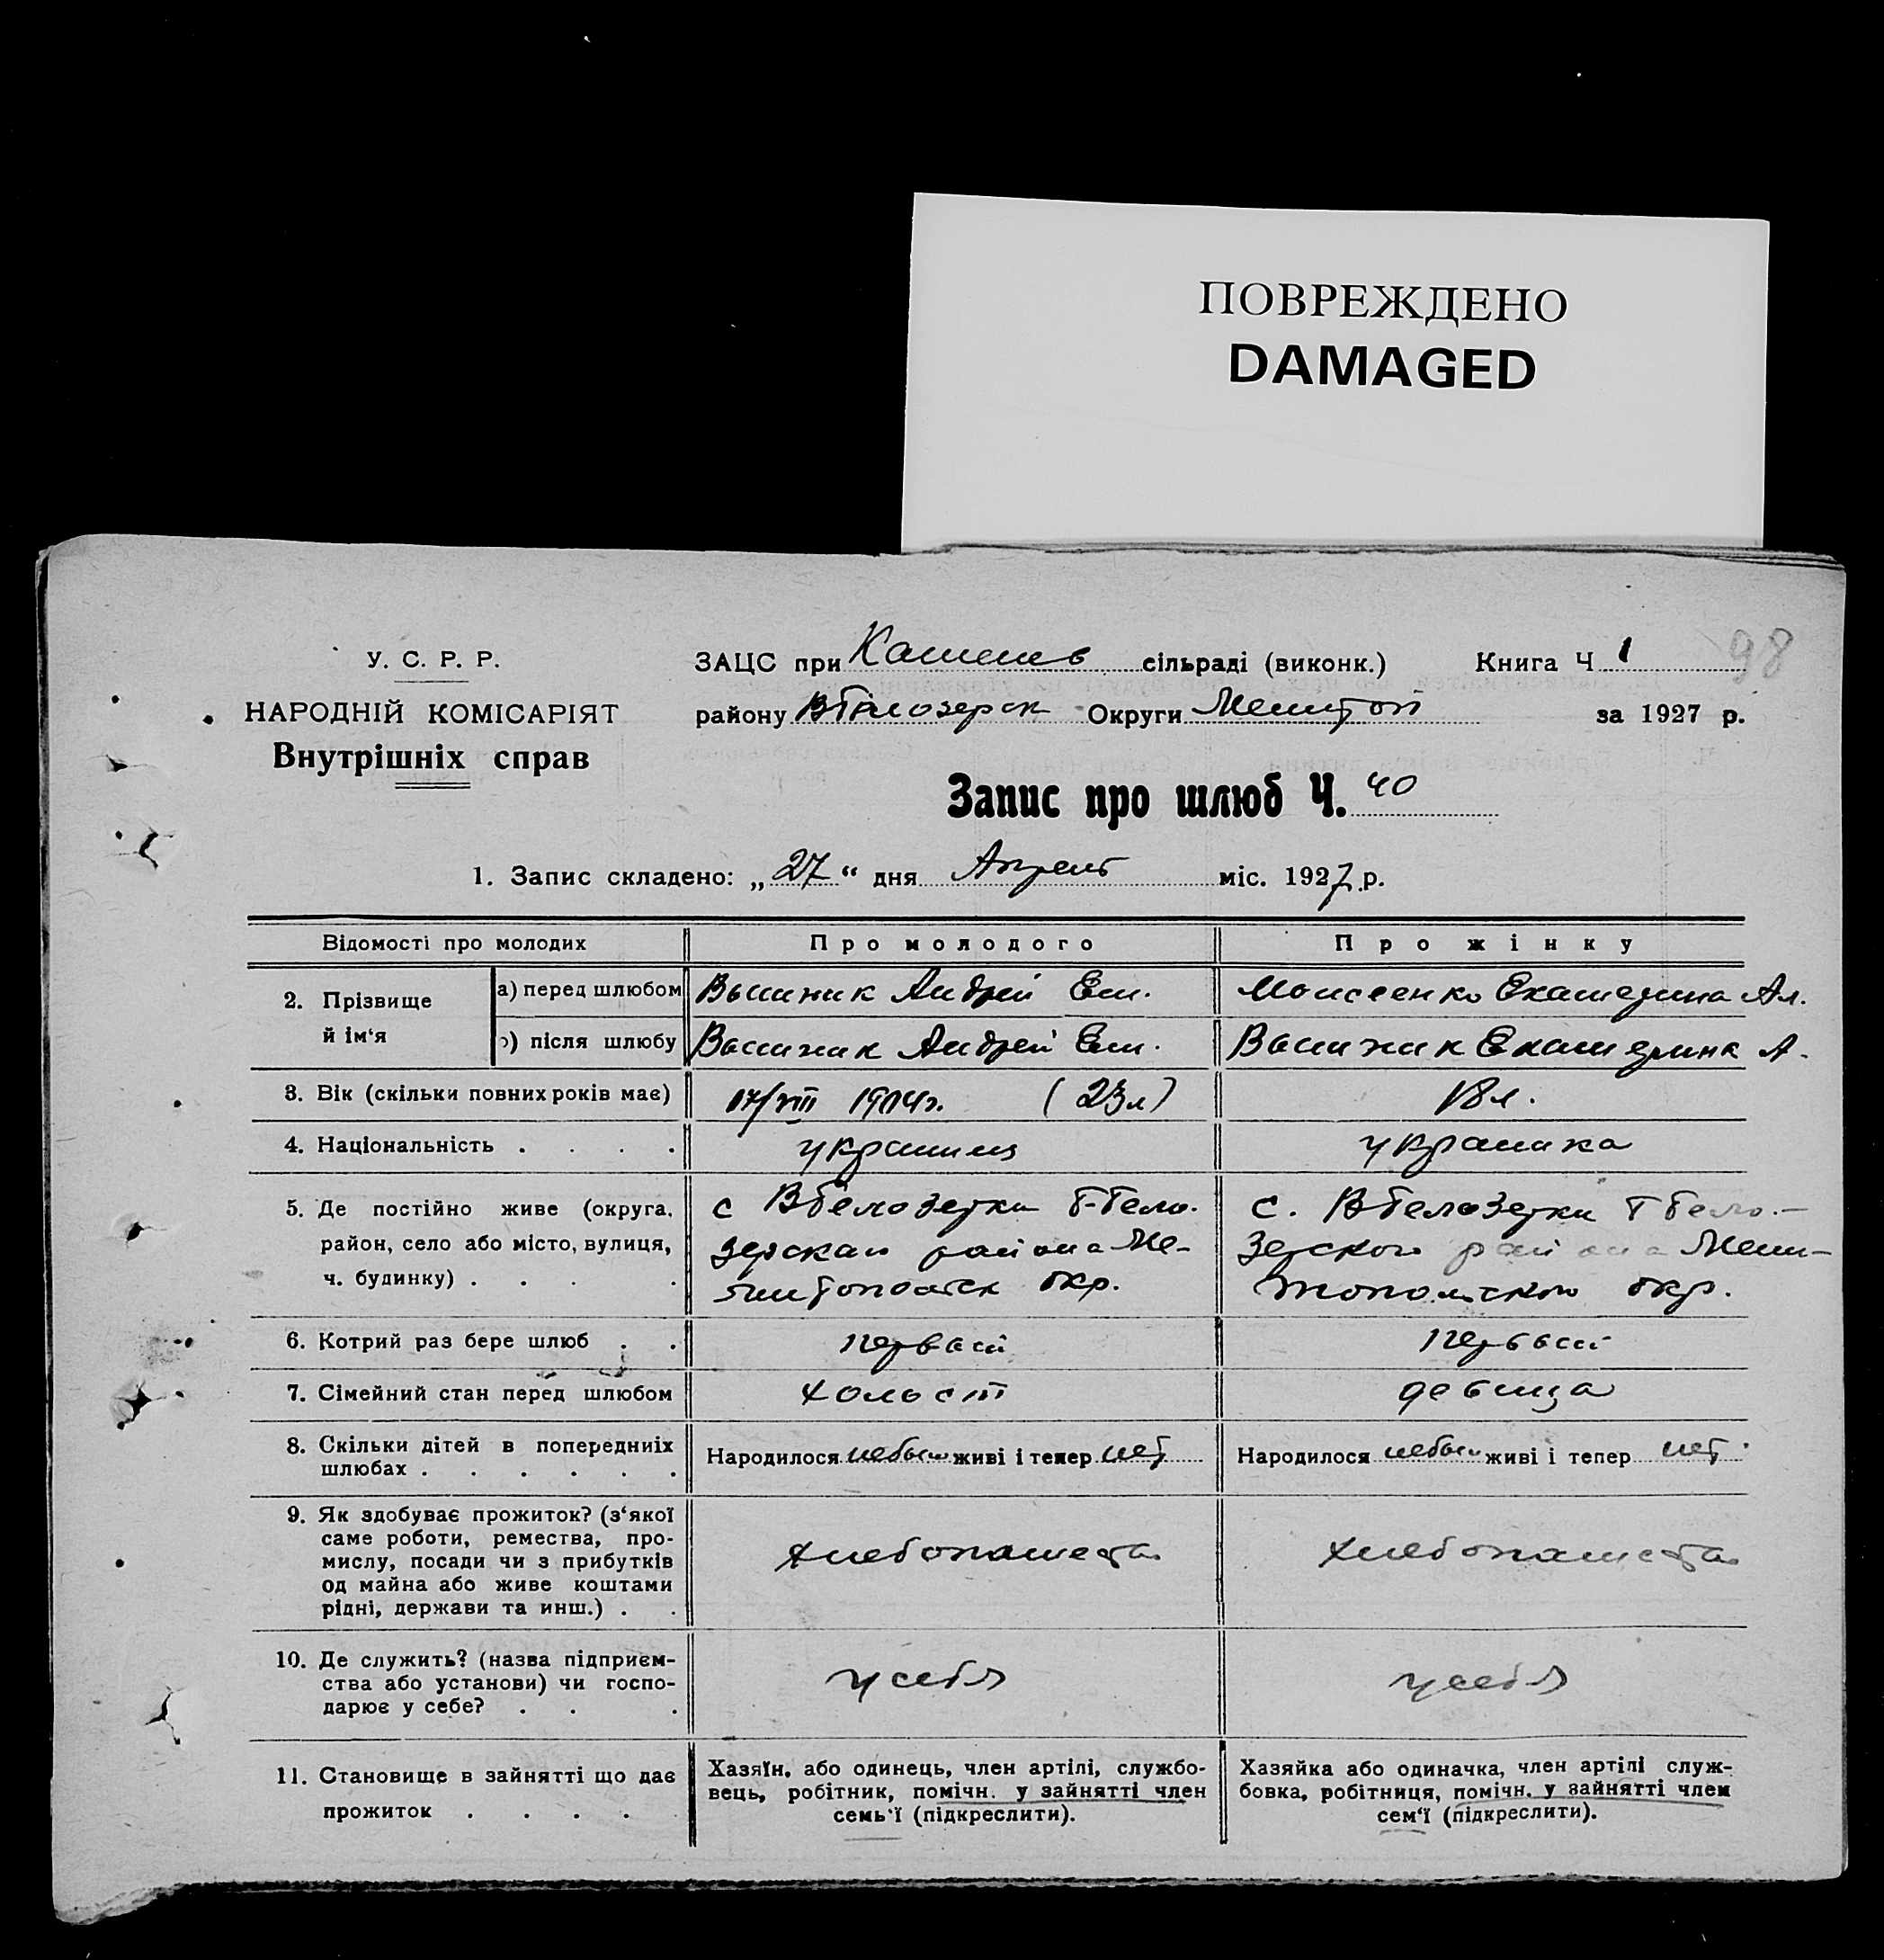 ПОВРЕЖДЕНО
DAMAGED
98
У. С. Р. Р.
НАРОДНІЙ КОМІСАРІЯТ
Внутрішніх справ
ЗАЦС при сільраді (виконк.) Книга Ч 1
району Округи за 1927 р.
Запис про шлюб Ч. 40
1. Запис складено: „27“ дня Апрель міс. 1927 р.
Відомості про молодих
Про молодого
Про жінку
2. Прізвище й ім‘я
а) перед шлюбом
Андрей Ем.
Моисеенко Екатерина Ал.
б) після шлюбу
Андрей Ем.
Екатерина А.
3. Вік (скільки повних років має)
17/VIII 1904г. (23 л)
18 л.
4. Національність . . . .
украинец
украинка
5. Де постійно живе (округа,
район, село або місто, вулиця,
ч. будинку) . . .
с ВБелозерки Б-Бело-
зерскаго района Ме-
литопольск окр.
с. ВБелозерки Бело-
зерского района Мели-
топольского окр.
6. Котрий раз бере шлюб . .
первый
первый
7. Сімейний стан перед шлюбом
холост
девица
8. Скільки дітей в попередниіх
шлюбах . . . . . .
Народилося небыло живі і тепер нет
Народилося небыло живі і тепер нет
9. Як здобуває прожиток? (з‘якої
саме роботи, ремества, про-
мислу, посади чи з прибутків
од майна або живе коштами
рідні, держави та инш.) . .
хлебопашество
хлебопашество
10. Де служить? (назва підприєм-
ства або установи) чи госпо-
дарює у себе? . . .
у себя
у себя
11. Становище в зайнятті що дає
прожиток . . . . .
Хазяїн, або одинець, член артілі, службо-
вець, робітник, помічн. у зайнятті член
семь‘ї (підкреслити).
Хазяйка або одиначка, член артілі служ-
бовка, робітниця, помічн. у зайнятті член
сем‘ї (підкреслити).